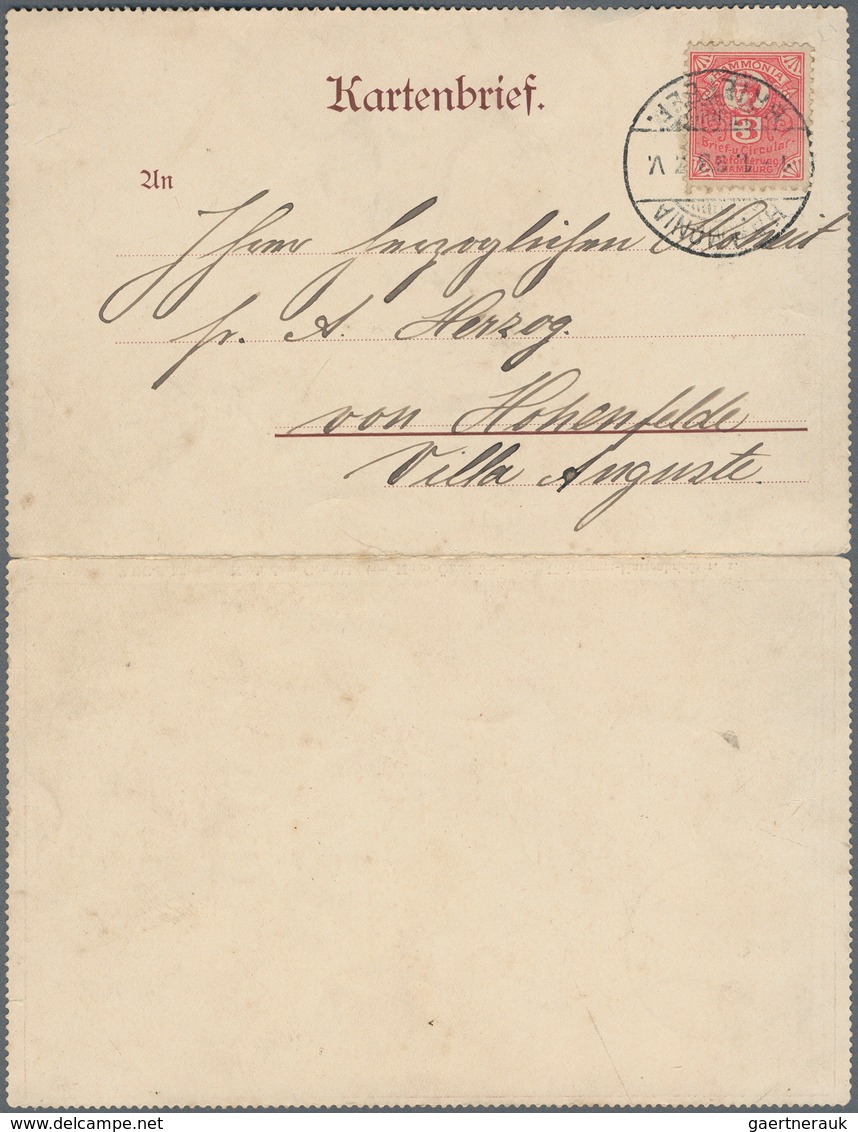 Kartenbrief.
HAMMONIA
3
Brief-u. Circular-
Beförderung
HAMBURG
HAMMONIA
An
Ihrer herzoglichen Hoheit
fr. A. Herzog.
von Hohenfelde
Villa Auguste.
gaertnerauk